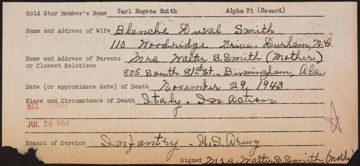 Gold Star Member's Name Carl Eugene Smith Alpha Pi (Howard)
Name and Address of Wife Blanche Duval Smith
110 Woodridge Drive Durham, N.C.
Name and Address of Parents or Closest Relatives Mrs. Walter S. Smith (Mother)
805 South 81st St. Birmingham, Ala.
Date (or approximate date) of Death November 29, 1943
Place and Circumstance of Death Italy - In Action
JUL 20 1954
Branch of Service Infantry U.S. Army
Signed Mrs. Walter S. Smith (Mother)